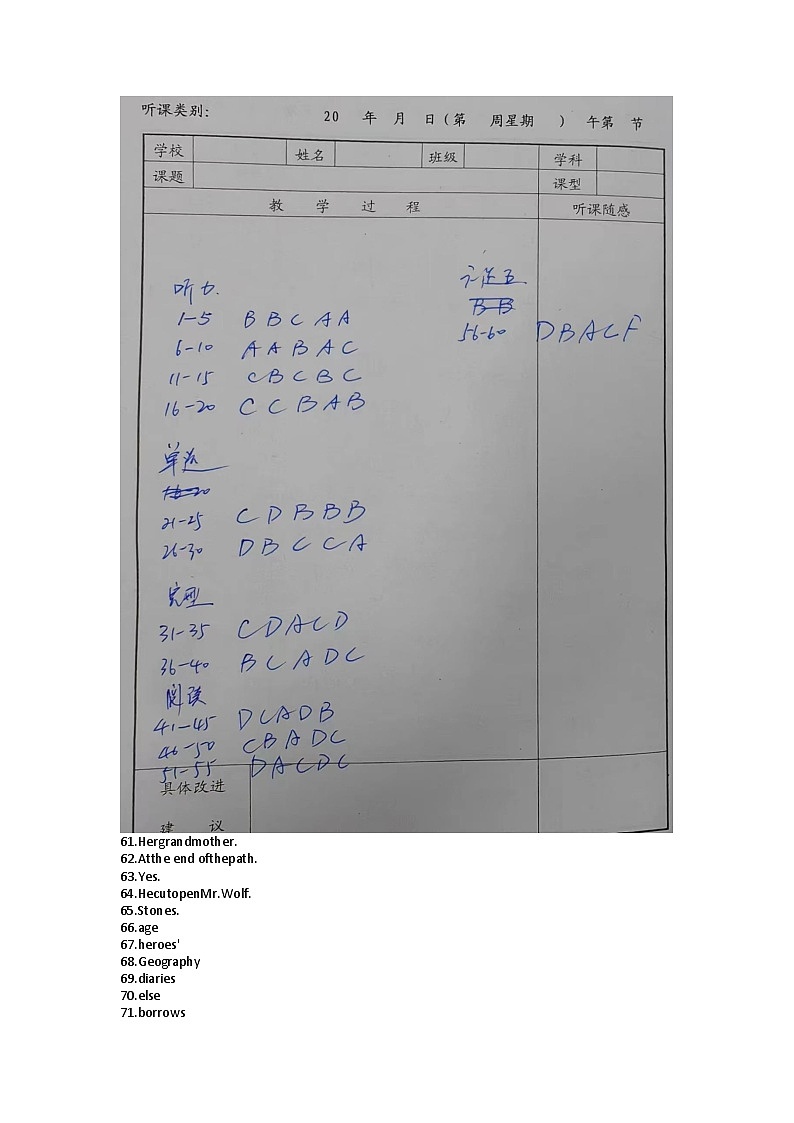 听课类别:
20 年 月 日(第 周星期 ) 午第 节
学校 姓名 班级 学科
课题 课型
教 学 过 程 听课随感
听力.
1-5 B B C A A
6-10 A A B A C
11-15 C B C B C
16-20 C C B A B
单选
16-20
21-25 C D B B B
26-30 D B C C A
完型
31-35 C D A C D
36-40 B C A D C
阅读
41-45 D C A D B
46-50 C B A D C
51-55 D A C D C
六选五
B B
56-60 D B A C F
具体改进
建 议
61.Hergrandmother.
62.Atthe end ofthepath.
63.Yes.
64.HecutopenMr.Wolf.
65.Stones.
66.age
67.heroes'
68.Geography
69.diaries
70.else
71.borrows